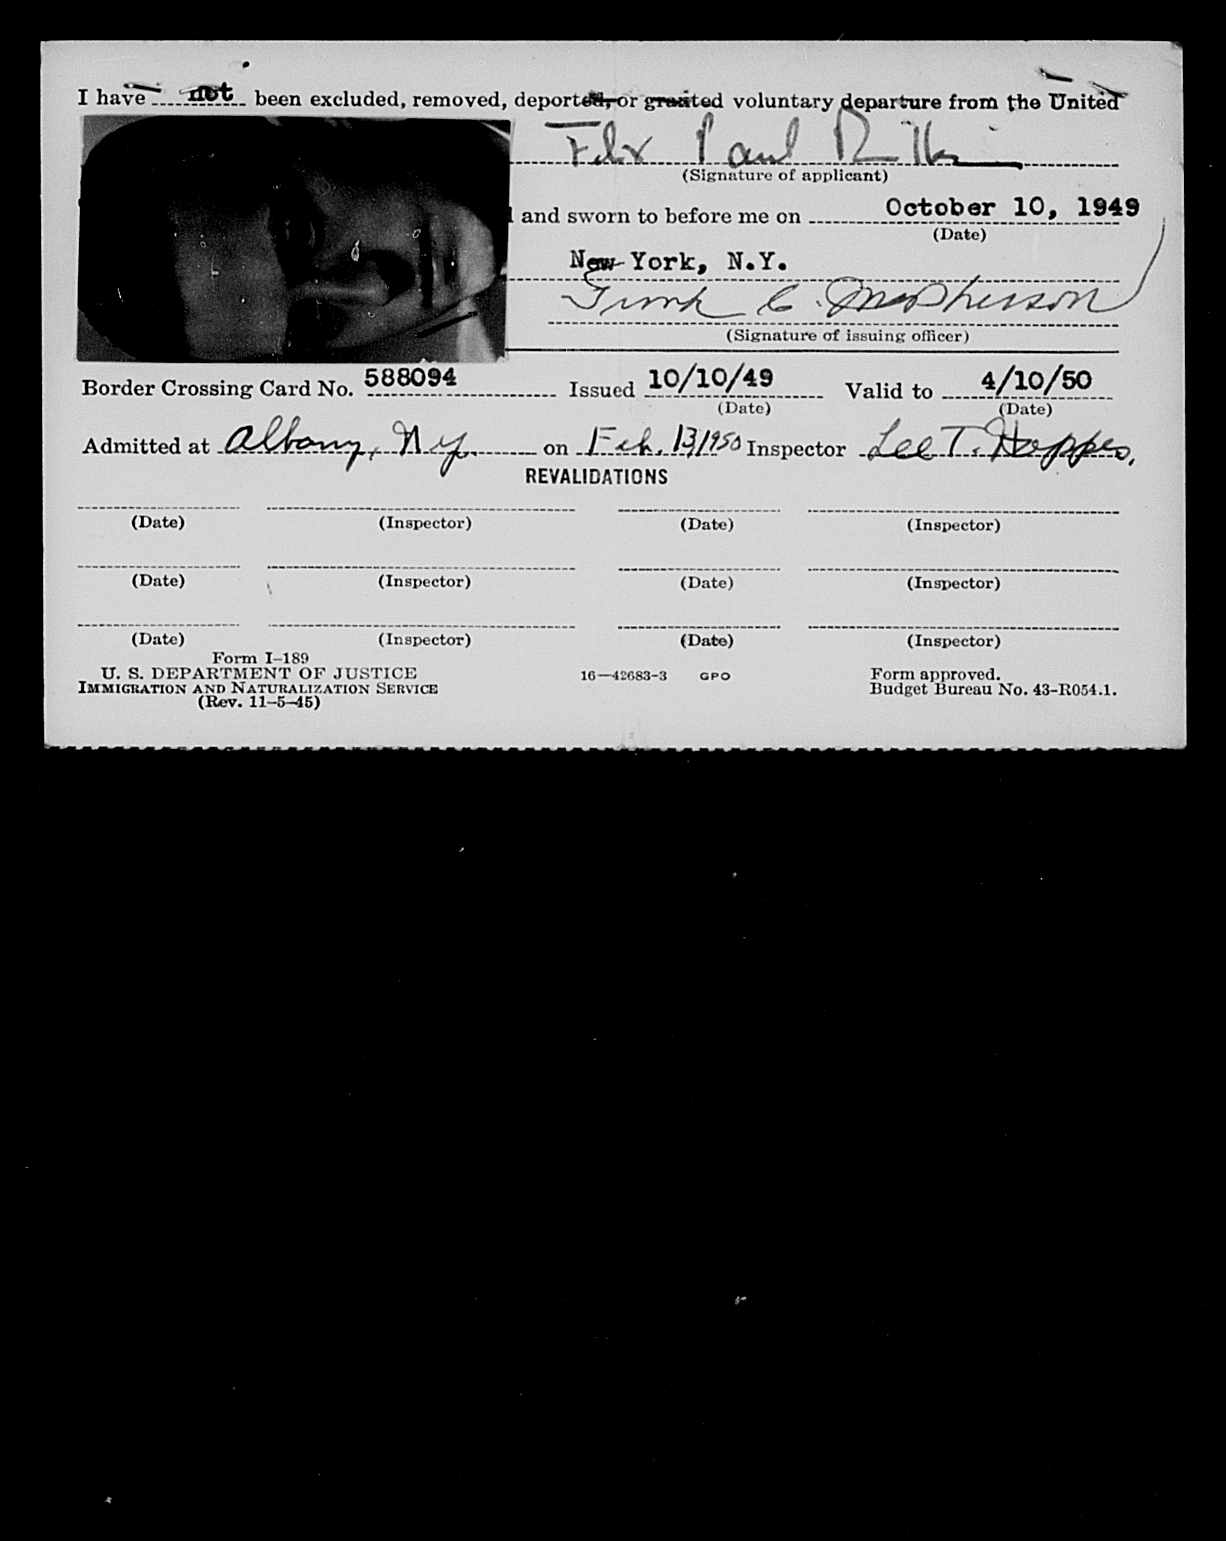 I have not been excluded, removed, deported, or granted voluntary departure from the United
Felix Paul
(Signature of applicant)
and sworn to before me on October 10, 1949
(Date)
New York, N.Y.
Frank C. McPherson
(Signature of issuing officer)
Border Crossing Card No. 588094 Issued 10/10/49 Valid to 4/10/50
(Date) (Date)
Admitted at Albany, N.Y. on Feb. 13, 1950 Inspector Lee T. Hoppes,
REVALIDATIONS
(Date) (Inspector) (Date) (Inspector)
(Date) (Inspector) (Date) (Inspector)
(Date) (Inspector) (Date) (Inspector)
Form I-189
U. S. DEPARTMENT OF JUSTICE 16—42683-3 GPO Form approved.
IMMIGRATION AND NATURALIZATION SERVICE Budget Bureau No. 43-R054.1.
(Rev. 11-5-45)